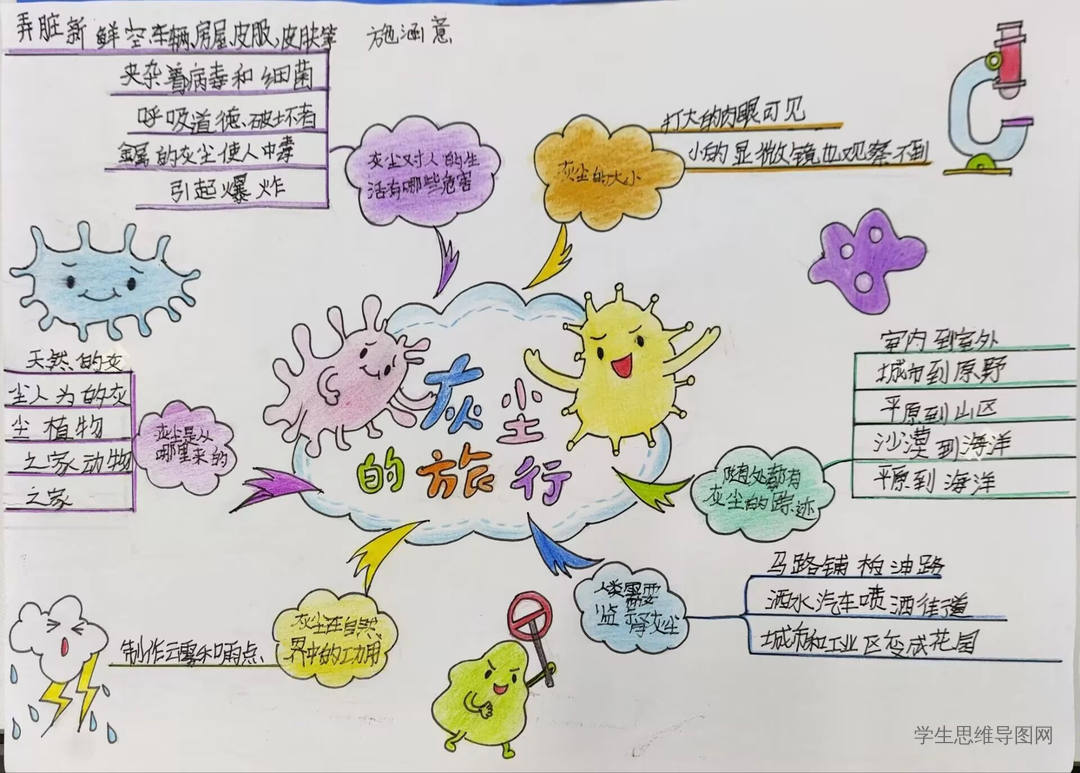 弄脏新鲜空、车辆、房屋、皮服、皮肤等
施涵意
夹杂着病毒和细菌
呼吸道德、破坏者
金属的灰尘使人中毒
引起爆炸
灰尘对人的生
活有哪些危害
灰尘的大小
打大的肉眼可见
小的显微镜也观察不到
灰尘
的旅行
天然的灰
尘人为的灰
尘植物
之家动物
之家
灰尘是从
哪里来的
室内到室外
城市到原野
平原到山区
沙漠到海洋
平原到海洋
随处都有
灰尘的踪迹
马路铺柏油路
洒水汽车喷洒街道
城市和工业区变成花园
人类需要
监督灰尘
灰尘在自然
界中的功用
制作云雾和雨点、
学生思维导图网